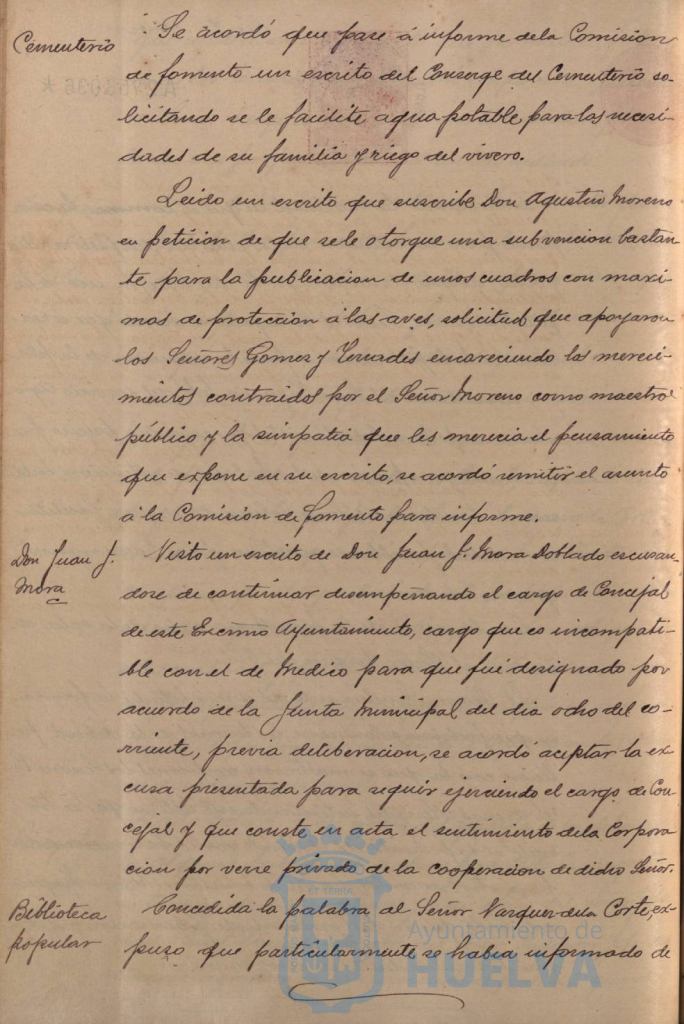 Cementerio
Se acordó que pase á informe dela Comision
de fomento un escrito del Conserge del Cementerio so-
licitando se le facilite agua potable para las necesi-
dades de su familia y riego del vivero.
Leido un escrito que suscribe Don Agustin Moreno
en peticion de que sele otorgue una subvencion bastan-
te para la publicacion de unos cuadros con maxi-
mas de proteccion á las aves, solicitud que apoyaron
los Señores Gomez y encareciendo los mereci-
mientos contraidos por el Señor Moreno como maestro
público y la simpatia que les merecia el pensamiento
que expone en su escrito, se acordó remitir el asunto
á la Comision de fomento para informe.
Don Juan J.
Mora
Visto un escrito de Don Juan J. Mora Doblado escusan-
dose de continuar desempeñando el cargo de Concejal
de este Excmo Ayuntamiento, cargo que es incompati-
ble con el de Medico para que fué designado por
acuerdo de la Junta Municipal del dia ocho del co-
rriente, previa deliberacion, se acordó aceptar la ex-
cusa presentada para seguir ejerciendo el cargo de Con-
cejal y que conste en acta el sentimiento dela Corpora-
cion por verse privado de la cooperacion de dicho Señor.
Biblioteca
popular
Concedida la palabra al Señor Vazquez dela Corte, ex-
puso que particularmente se habia informado de
Ayuntamiento de
HUELVA